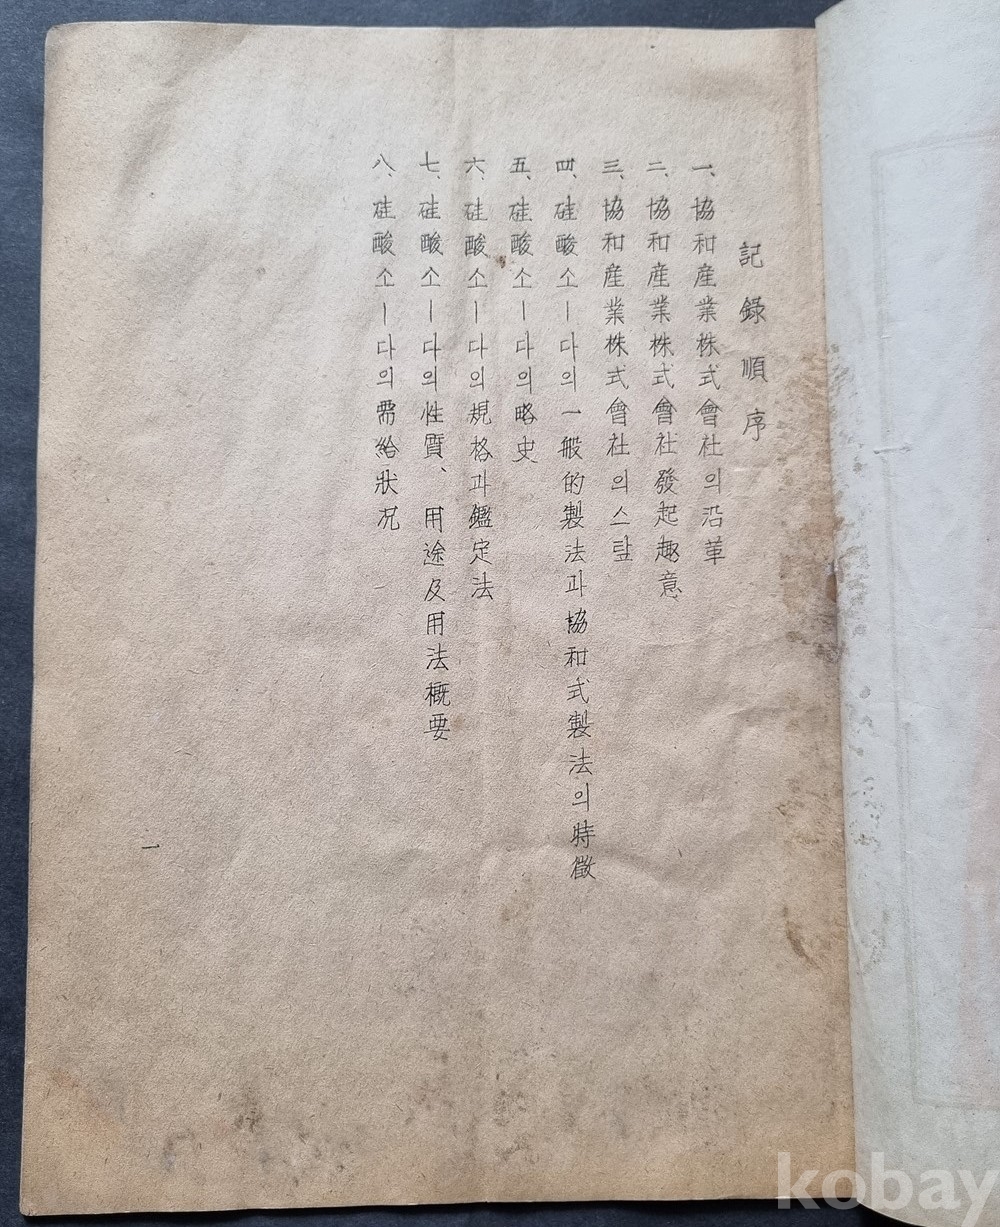 記錄順序
一、協和産業株式會社의沿革
二、協和産業株式會社發起趣意
三、協和産業株式會社의스탚
四、硅酸소ー다의一般的製法과協和式製法의特徵
五、硅酸소ー다의略史
六、硅酸소ー다의規格과鑑定法
七、硅酸소ー다의性質、用途及用法槪要
八、硅酸소ー다의需給狀況
一
kobay